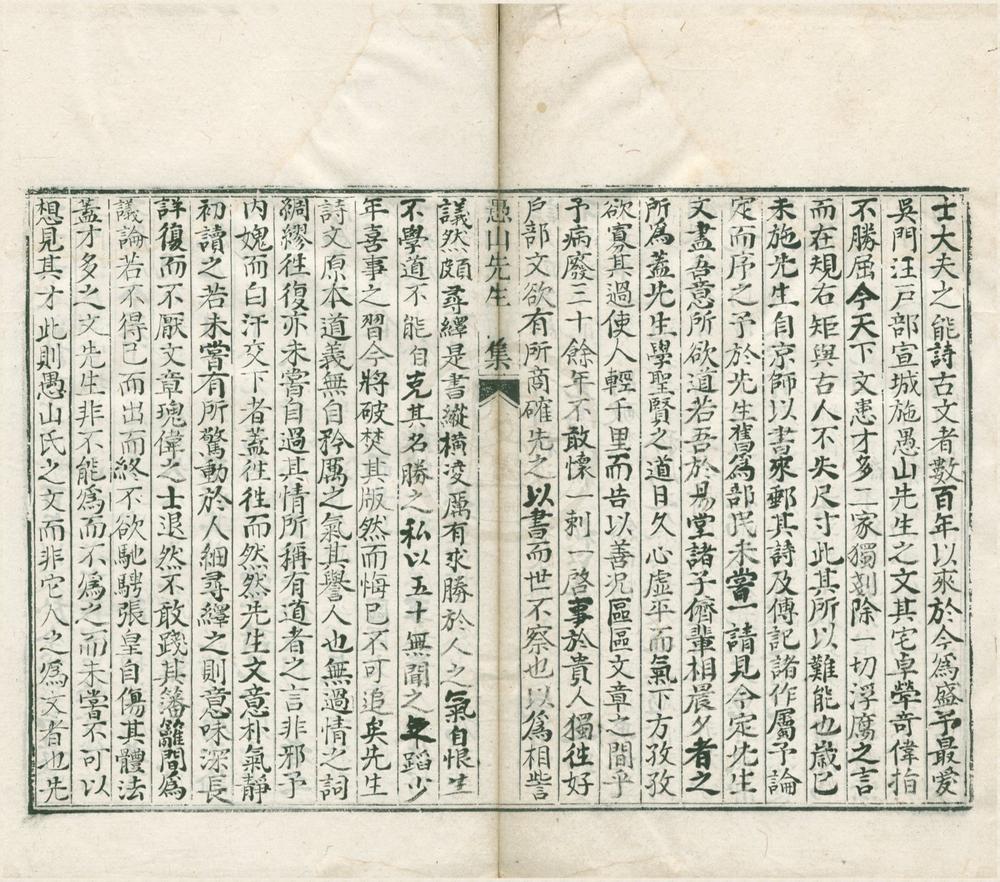 士大夫之能詩古文者數百年以來於今爲盛予最愛
吳門汪戸部宣城施愚山先生之文其宅卓犖奇偉指
不勝屈今天下文患才多二家獨剗除一切浮靡之言
而在規右矩與古人不失尺寸此其所以難能也歲己
未施先生自京師以書來郵其詩及傳記諸作屬予論
定而序之予於先生舊爲部民未嘗一請見今定先生
文盡吾意所欲道若吾於易堂諸子儕輩相晨夕者之
所爲葢先生學聖賢之道日久心虛平而氣下方孜孜
欲寡其過使人輕千里而告以善况區區文章之間乎
予病廢三十餘年不敢懷一刺一啓事於貴人獨徃好
戸部文欲有所商確先之以書而世不察也以爲相訾
愚山先生 集
議然頗尋繹是書縱橫凌厲有求勝於人之氣自恨生
不學道不能自克其名勝之私以五十無聞之年蹈少
年喜事之習今將破焚其版然而悔已不可追矣先生
詩文原本道義無自矜厲之氣其譽人也無過情之詞
綢繆徃復亦未嘗自過其情所稱有道者之言非邪予
内媿而白汗交下者葢徃徃而然然先生文意朴氣靜
初讀之若未嘗有所驚動於人細尋繹之則意味深長
詳復而不厭文章瑰偉之士退然不敢踐其藩籬間爲
議論若不得已而出而終不欲馳騁張皇自傷其體法
葢才多之文先生非不能爲而不爲之而未嘗不可以
想見其才此則愚山氏之文而非它人之爲文者也先